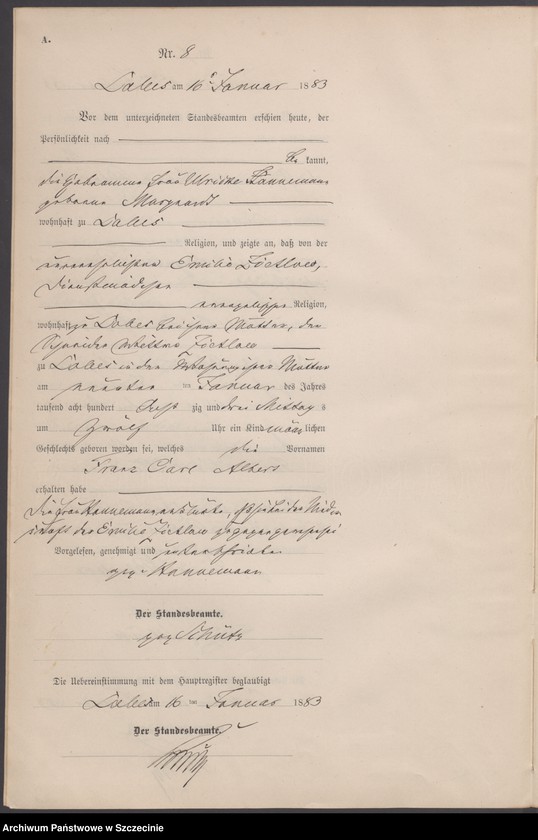 A.
Nr. 8
Labes am 16ten Januar 1883
Vor dem unterzeichneten Standesbeamten erschien heute, der
Persönlichkeit nach
be kannt,
die Hebamme Frau Ulrike Hannemann
geborene Marquardt
wohnhaft zu Labes
Religion, und zeigte an, daß von der
unverehelichten Emilie Zietlow,
Dienstmädchen
evangelischer Religion,
wohnhaft zu Labes bei ihrer Mutter, der
Wittwe Zietlow
zu Labes in der Wohnung ihrer Mutter
am neunten ten Januar des Jahres
tausend acht hundert acht zig und drei Mittag s
um zwölf Uhr ein Kind männ lichen
Geschlechts geboren worden sei, welches die Vornamen
Franz Carl Albert
erhalten habe
Die Frau Hannemann erklärte, daß sie bei der Nieder
kunft der Emilie Zietlow zugegen gewesen sei
Vorgelesen, genehmigt und unterschrieben
gez. Hannemann
Der Standesbeamte.
gez. Schütz
Die Uebereinstimmung mit dem Hauptregister beglaubigt
Labes am 16 ten Januar 1883
Der Standesbeamte.
Archiwum Państwowe w Szczecinie